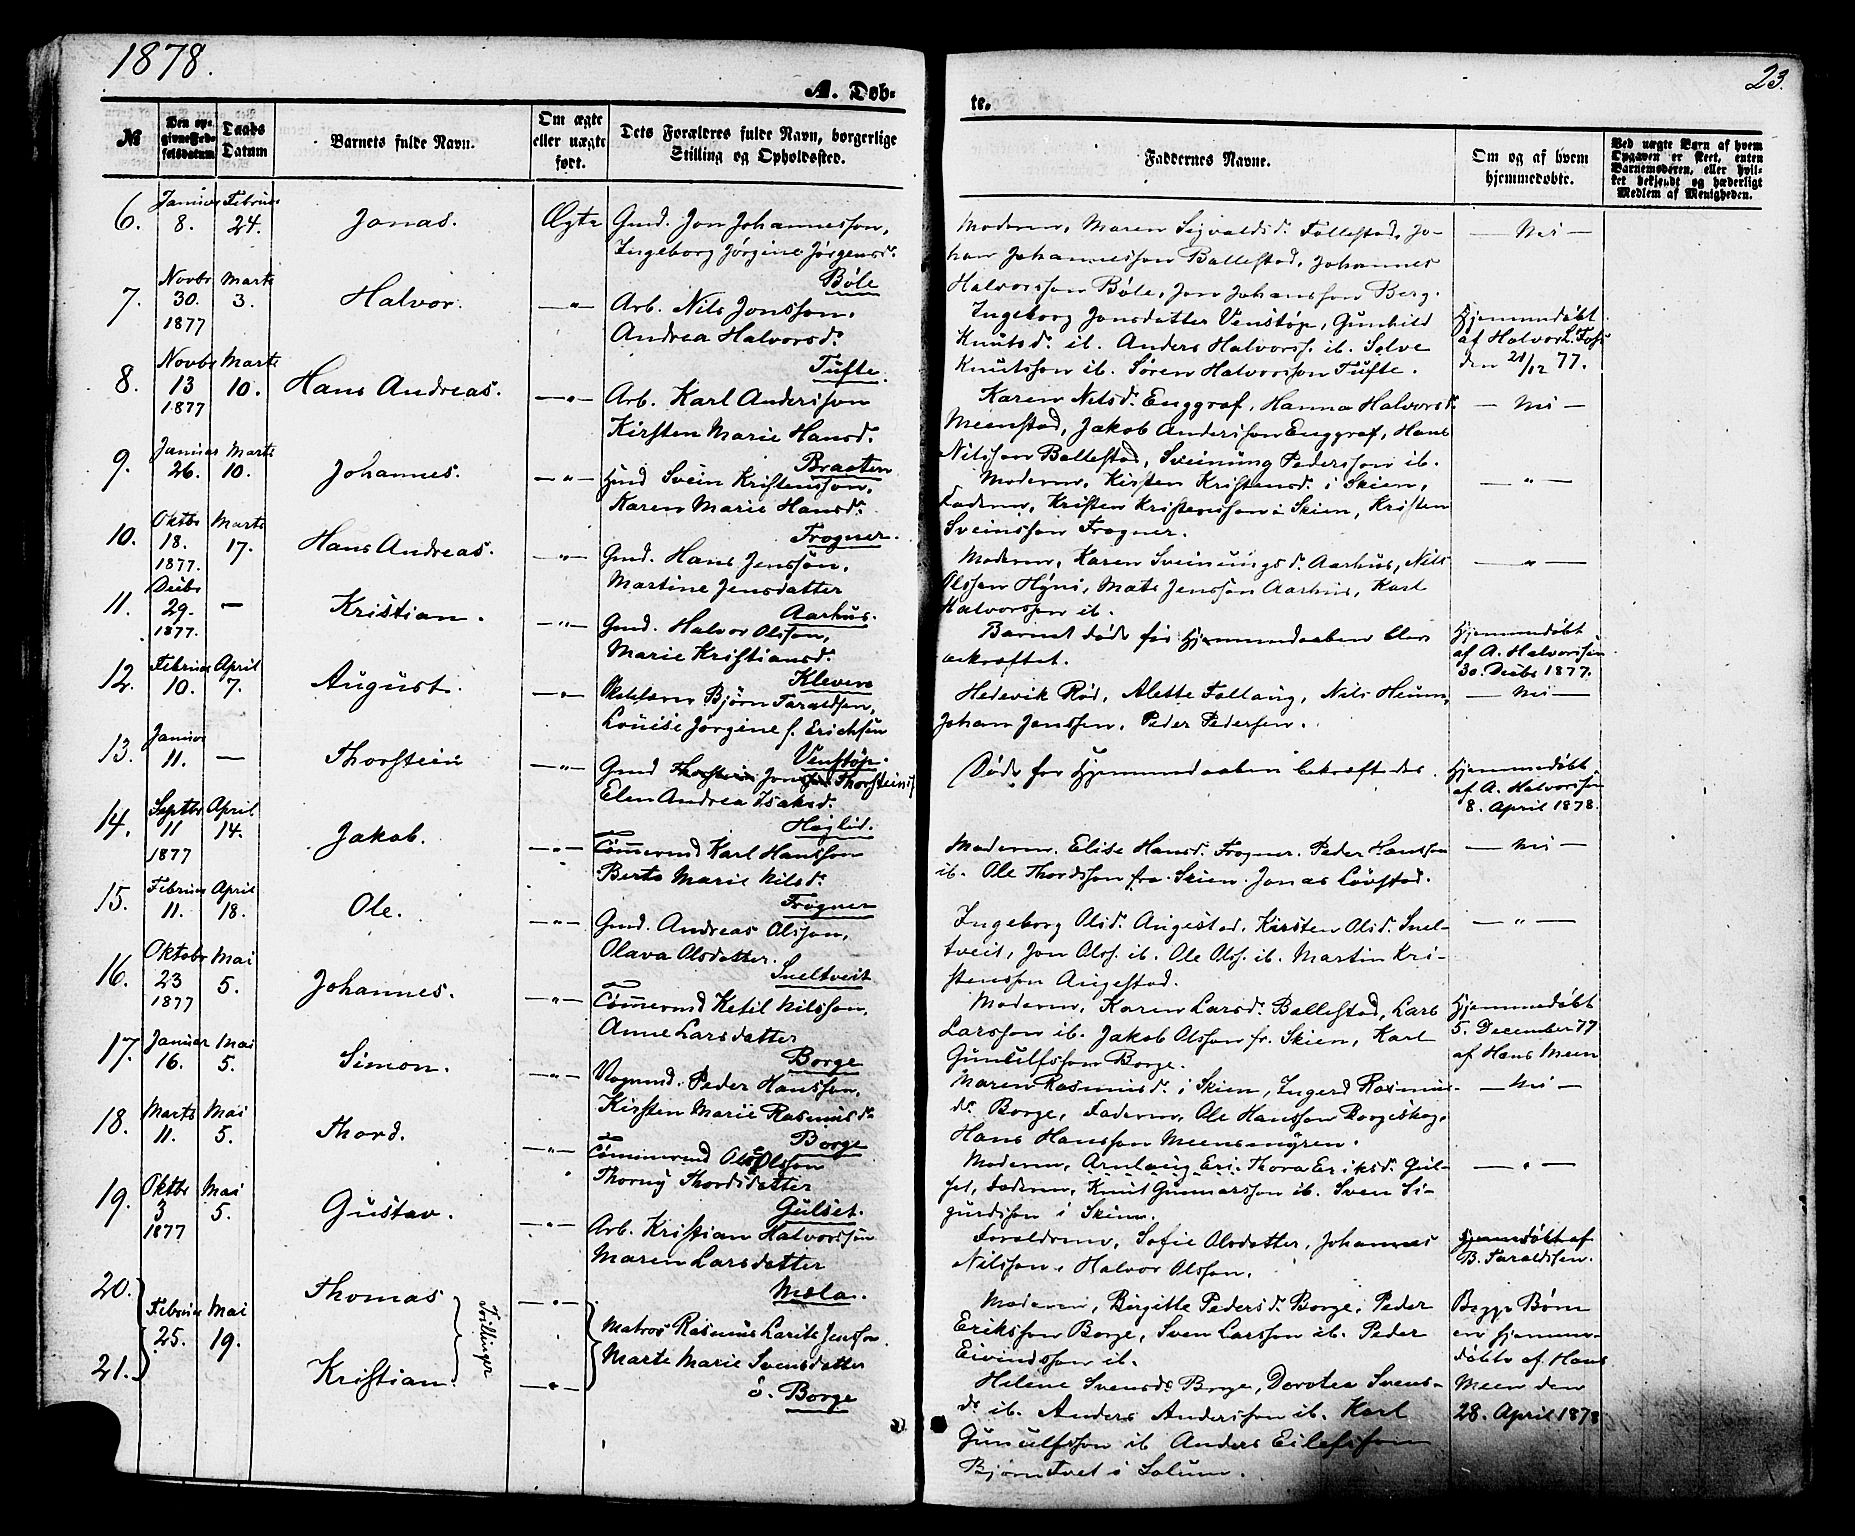 1878.
23.
A. Døb-
te.
№
Den op-
givne Fød-
selsdatum
Daabs
Datum
Barnets fulde Navn.
Om ægte
eller uægte
født.
Dets Forældres fulde Navn, borgerlige
Stilling og Opholdssted.
Faddernes Navne.
Om og af hvem
hjemmedøbte.
Ved uægte Børn af hvem
Opgaven er skeet, enten
Barnemoderen, eller hvil-
ket bekjendt og hæderligt
Medlem af Menigheden.
6.
Januar
8.
Februar
24.
Jonas.
Ægte
Gmd. Jon Johannesson,
Ingeborg Jørgine Jørgensd.
Bøle
Moderen, Maren Sigvaldsd. Føllestad, Jo-
han Johannesson Ballestad, Johannes
Halvorsson Bøle, Jon Johansson Berg.
— Nei —
7.
Novbr
30.
1877
Marts
3.
Halvor.
— " —
Arb. Nils Jonsson,
Andrea Halvorsd.
Tufte
Ingeborg Jonsdatter Venstøp, Gunhild
Knutsd. ib. Anders Halvorss. ib. Solve
Knutsson ib. Søren Halvorsson Tufte.
Hjemmedøbt
af Halvor L. Foss
den 21/12 77.
8.
Novbr
13
1877
Marts
10.
Hans Andreas.
— " —
Arb. Karl Andersson
Kirsten Marie Hansd.
Braaten
Karen Nilsd. Enggraf, Hanna Halvorsd.
Meenstad, Jakob Andersson Enggraf, Hans
Nilsson Ballestad, Sveinung Pedersson ib.
— Nei —
9.
Januar
26.
Marts
10.
Johannes.
— " —
Hmd Svein Kristensson,
Karen Marie Hansd.
Frogner.
Moderen, Kirsten Kristensd. i Skien,
Faderen, Kristen Kristensson i Skien, Kristen
Sveinsson Frogner.
— " —
10.
Oktbr
18.
1877.
Marts
17.
Hans Andreas.
— " —
Gmd. Hans Jensson,
Martine Jensdatter
Aarhus.
Moderen, Karen Sveinungsd. Aarhus, Nils
Olsson Hyni, Mats Jensson Aarhus, Karl
Halvorsson ib.
— " —
11.
Decbr
29.
1877.
—
Kristian.
— " —
Gmd. Halvor Olsson,
Marie Kristiansd.
Kleven
Barnet døde før Hjemmedaaben blev
bekræftet.
Hjemmedøbt
af A. Halvorssøn
30. Decbr 1877.
12.
Februar
10.
April
7.
August.
— " —
Bjørn Taraldsen,
Louise Jørgine f. Erichsen
Venstøp.
Hedevik Rød, Alette Follaug, Nils Heum,
Johan Jonssen, Peder Pedersen.
— Nei —
13.
Januar
11.
—
Thorstein
— " —
Gmd Thorstein Jonsson Thorsteins.
Elen Andrea Isaksd.
Høglid.
Døde før Hjemmedaaben bekræftedes.
Hjemmedøbt
af A. Halvorssøn
8. April 1878.
14.
Septbr
11
1877
April
14.
Jakob.
— " —
Tømmermd Karl Hansson
Berte Marie Nilsd.
Frogner
Moderen. Elise Hansd. Frogner. Peder Hansson
ib. Ole Thordsson fra Skien. Jonas Løvstad.
— Nei —
15.
Februar
11.
April
18.
Ole.
— " —
Gmd. Andreas Olsson,
Olava Olsdatter.
Sneltveit
Ingeborg Olsd. Augestad. Kirsten Olsd. Snel-
tveit, Jon Olss. ib. Ole Olss. ib. Martin Kri-
stensson Augestad.
— " —
16.
Oktobr
23
1877
Mai
5.
Johannes.
— " —
Tømmermd Ketil Nilsson,
Anne Larsdatter
Borge
Moderen, Karen Larsd. Ballestad, Lars
Larsson ib. Jakob Olsson fr. Skien, Karl
Gunulfsson Borge.
Hjemmedøbt
5. December 77
af Hans Meen
17.
Januar
16.
Mai
5.
Simon.
— " —
Peder Hansson,
Kirsten Marie Rasmusd.
Borge
Maren Rasmusd. i Skien, Ingerd Rasmus-
d. Borge, Faderen, Ole Hansson Borgeskog,
Hans Hansson Meensmyren.
— Nei —
18.
Marts
11.
Mai
5.
Thord.
— " —
Tømmermd Ole Olsson
Thorny Thordsdatter
Gulset.
Moderen, Arnlaug Thora Eriksd. Gul-
set, Faderen, Knut Gunnarsson ib. Sven Si-
gurdsson i Skien.
— " —
19.
Oktbr
3
1877
Mai
5.
Gustav.
— " —
Arb. Kristian Halvorssøn
Maren Larsdatter
Mæla.
Forældrene, Sofie Olsdatter, Johannes
Nilsson, Halvor Olsson.
Hjemmedøbt af
B. Taraldsen.
20.
Februar
25.
Mai
19.
Thomas
Tvillinger
— " —
Matros Rasmus Laritz Jensson
Marte Marie Svensdatter
ö. Borge
Moderen, Birgitte Pedersd. Borge, Peder
Eriksson Borge, Sven Larsson ib. Peder
Eivindsson ib.
Begge Børn
ere hjemme-
døbte af Hans
Meen den
28. April 1878
21.
Kristian.
— " —
Helene Svensd. Borge, Dorotea Svens-
d. ib. Anders Andersson ib. Karl
Gunulfsson ib Anders Eilefsson
Bjørntvet i Solum.